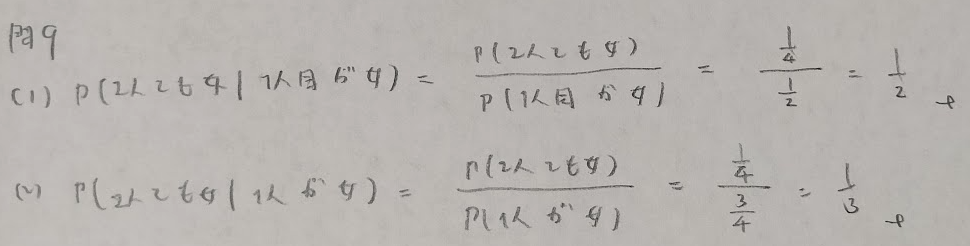 問9
(1) P(2人とも女|1人目が女) = P(2人とも女) / P(1人目が女) = 1/4 / 1/2 = 1/2
(2) P(2人とも女|1人が女) = P(2人とも女) / P(1人が女) = 1/4 / 3/4 = 1/3